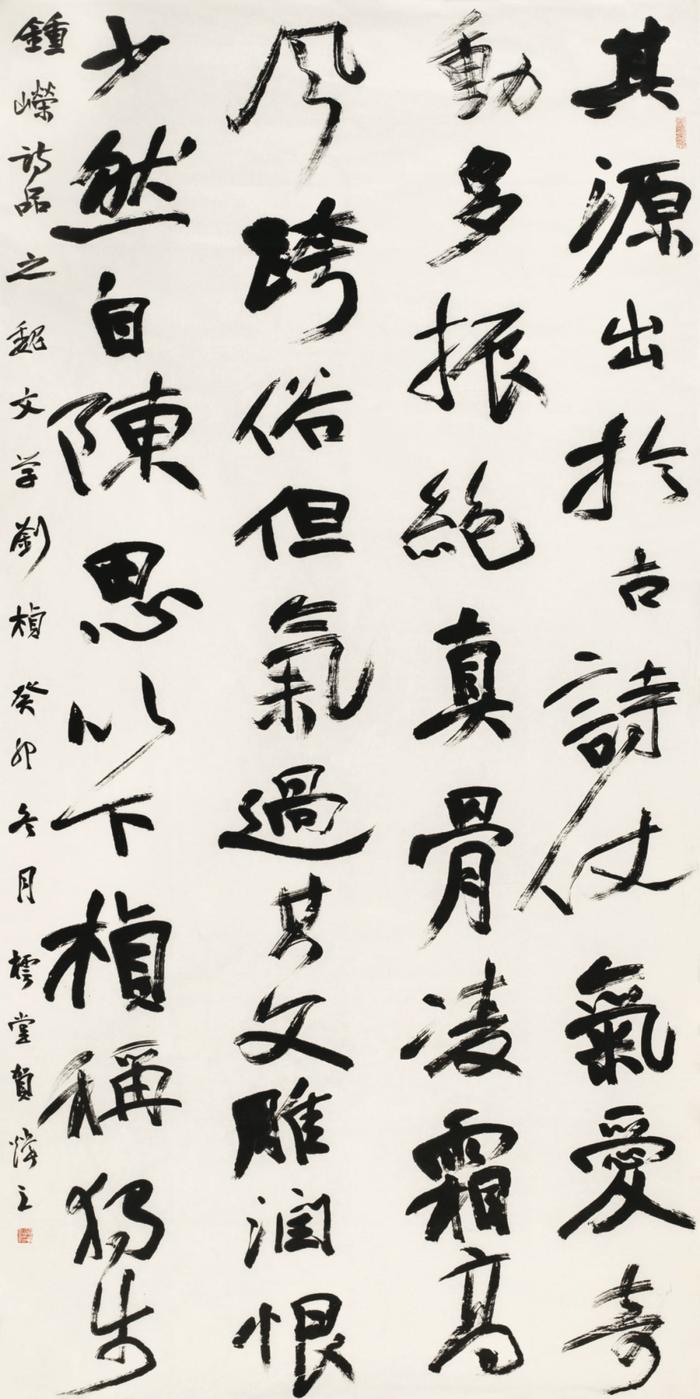 其源出於古詩仗氣愛奇
動多振絕真骨凌霜高
風跨俗但氣過其文雕潤恨
少然自陳思以下楨稱獨步
鍾嶸詩品之魏文学劉楨癸卯冬月樗堂賀煒之